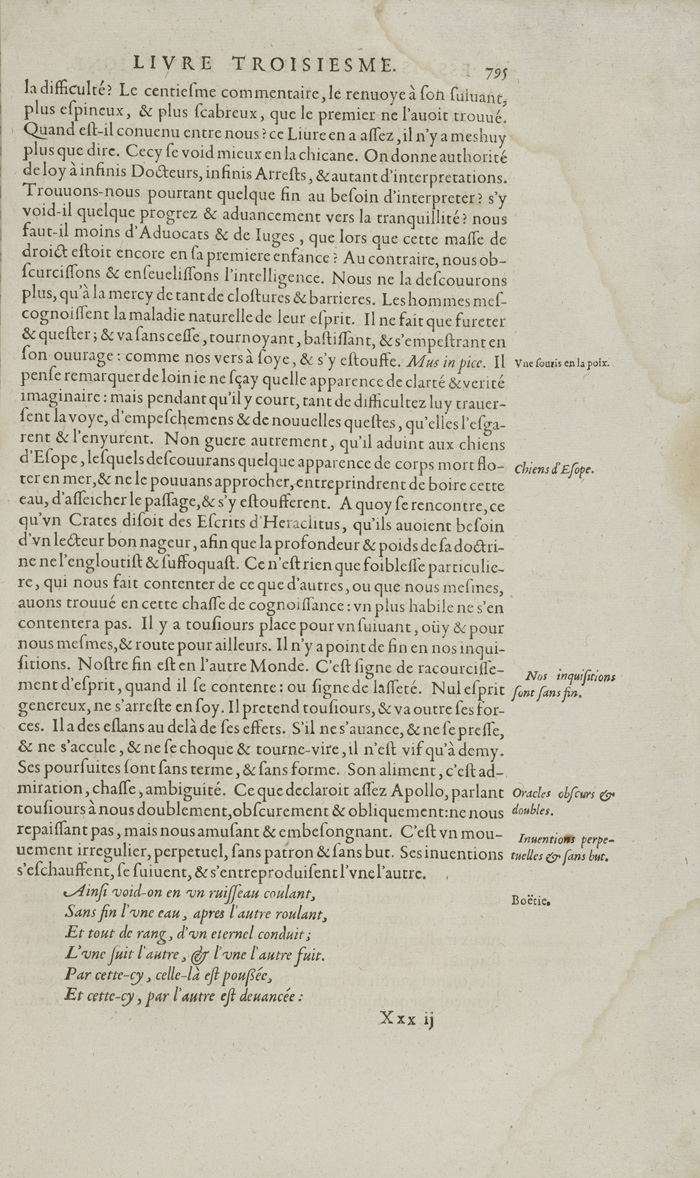 LIVRE TROISIESME.
795
la difficulté? Le centiesme commentaire, le renuoye à son suiuant,
plus espineux, & plus scabreux, que le premier ne l'auoit trouué.
Quand est-il conuenu entre nous? ce Liure en a assez, il n'y a meshuy
plus que dire. Cecy se void mieux en la chicane. On donne authorité
de loy à infinis Docteurs, infinis Arrests, & autant d'interpretations.
Trouuons-nous pourtant quelque fin au besoin d'interpreter? s'y
void-il quelque progrez & aduancement vers la tranquillité? nous
faut-il moins d'Aduocats & de Iuges, que lors que cette masse de
droict estoit encore en sa premiere enfance? Au contraire, nous ob-
scurcissons & enseuelissons l'intelligence. Nous ne la descouurons
plus, qu'à la mercy de tant de clostures & barrieres. Les hommes mes-
cognoissent la maladie naturelle de leur esprit. Il ne fait que fureter
& quester; & va sans cesse, tournoyant, bastissant, & s'empestrant en
son ouurage: comme nos vers à soye, & s'y estouffe. Mus in pice. Il
Vne souris en la poix.
pense remarquer de loin ie ne sçay quelle apparence de clarté & verité
imaginaire: mais pendant qu'il y court, tant de difficultez luy trauer-
sent la voye, d'empeschemens & de nouuelles questes, qu'elles l'esga-
rent & l'enyurent. Non guere autrement, qu'il aduint aux chiens
d'Esope, lesquels descouurans quelque apparence de corps mort flo-
Chiens d'Esope.
ter en mer, & ne le pouuans approcher, entreprindrent de boire cette
eau, d'asseicher le passage, & s'y estoufferent. A quoy se rencontre, ce
qu'vn Crates disoit des Escrits d'Heraclitus, qu'ils auoient besoin
d'vn lecteur bon nageur, afin que la profondeur & poids de sa doctri-
ne ne l'engloutist & suffoquast. Ce n'est rien que foiblesse particulie-
re, qui nous fait contenter de ce que d'autres, ou que nous mesmes,
auons trouué en cette chasse de cognoissance: vn plus habile ne s'en
contentera pas. Il y a tousiours place pour vn suiuant, oüy & pour
nous mesmes, & route pour ailleurs. Il n'y a point de fin en nos inqui-
sitions. Nostre fin est en l'autre Monde. C'est signe de racourcisse-
Nos inquisitions
ment d'esprit, quand il se contente: ou signe de lasseté. Nul esprit
sont sans fin.
genereux, ne s'arreste en soy. Il pretend tousiours, & va outre ses for-
ces. Il a des eslans au delà de ses effets. S'il ne s'auance, & ne se presse,
& ne s'accule, & ne se choque & tourne-vire, il n'est vif qu'à demy.
Ses poursuites sont sans terme, & sans forme. Son aliment, c'est ad-
miration, chasse, ambiguité. Ce que declaroit assez Apollo, parlant
Oracles obscurs &
tousiours à nous doublement, obscurement & obliquement: ne nous
doubles.
repaissant pas, mais nous amusant & embesongnant. C'est vn mou-
Inuentions perpe-
uement irregulier, perpetuel, sans patron & sans but. Ses inuentions
tuelles & sans but.
s'eschauffent, se suiuent, & s'entreproduisent l'vne l'autre.
Ainsi void-on en vn ruisseau coulant,
Boëtie.
Sans fin l'vne eau, apres l'autre roulant,
Et tout de rang, d'vn eternel conduit;
L'vne suit l'autre, & l'vne l'autre fuit.
Par cette-cy, celle-là est poußée,
Et cette-cy, par l'autre est deuancée:
Xxx ij